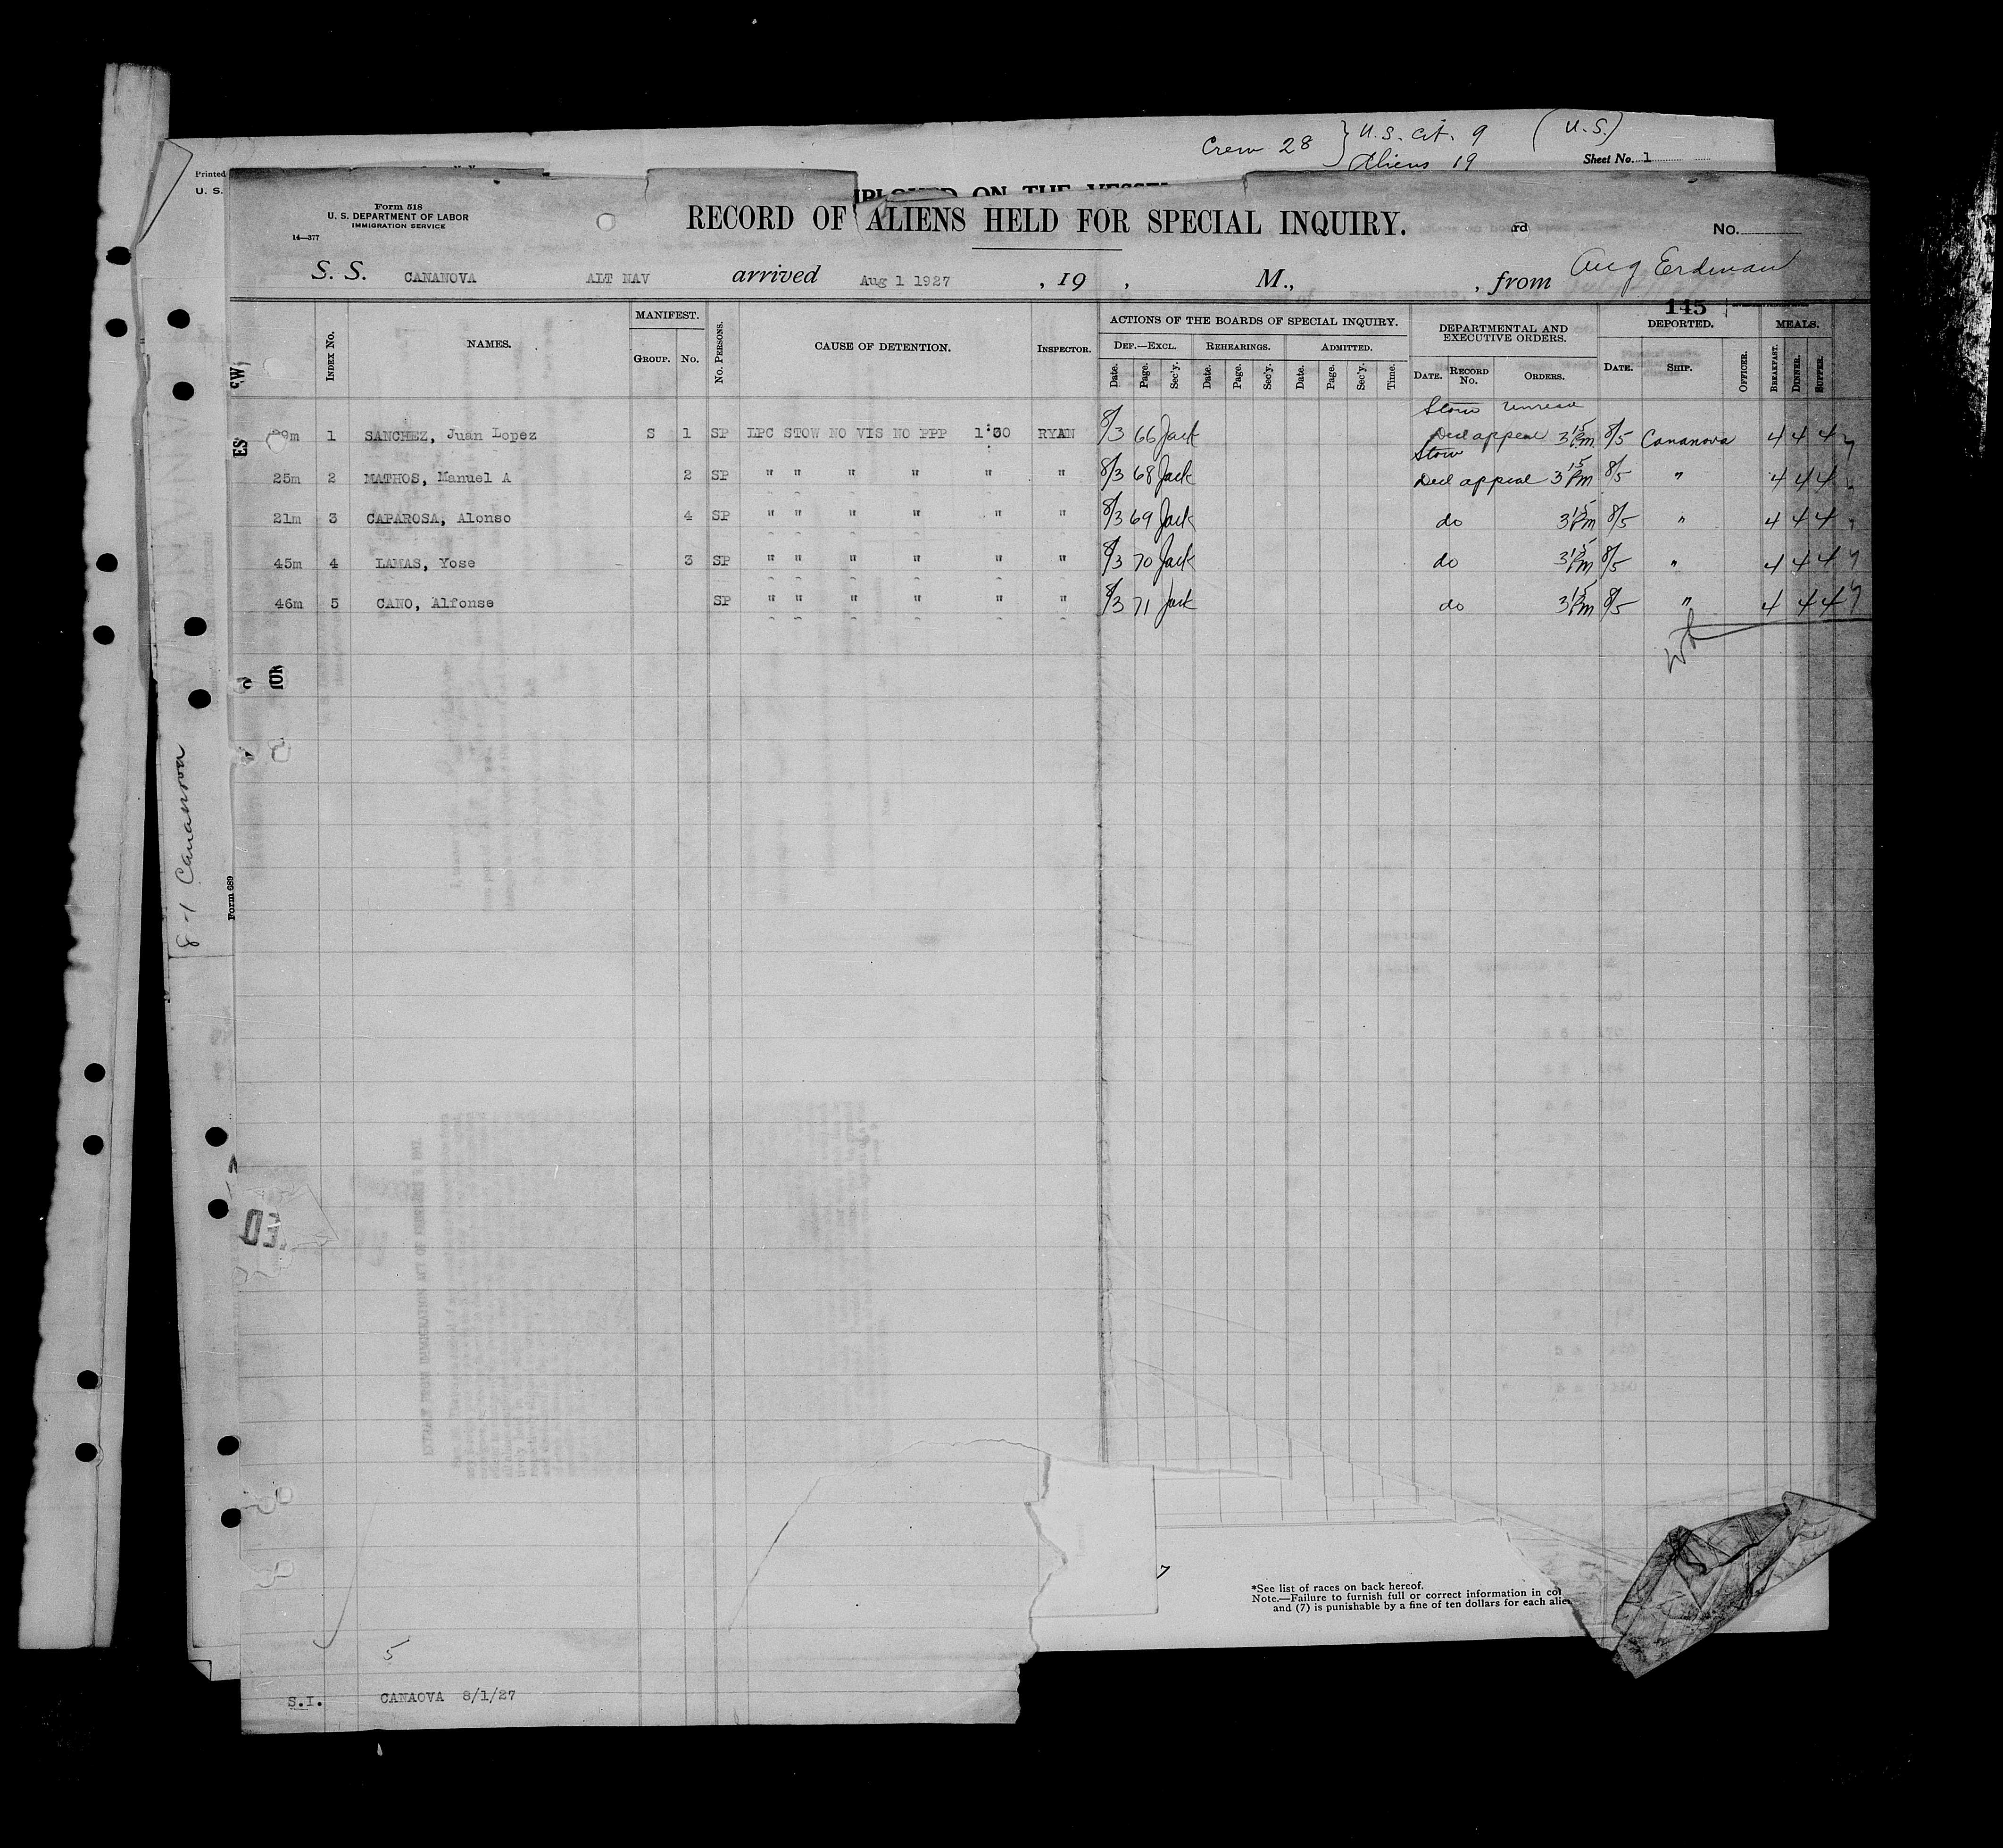 Crew 28 } U.S. Cit. 9 (U.S.)
Aliens 19
Sheet No. 1
Printed
U. S.
Form 518
U. S. DEPARTMENT OF LABOR
IMMIGRATION SERVICE
14—377
RECORD OF ALIENS HELD FOR SPECIAL INQUIRY.
rd
No.
S. S. CANANOVA ALT NAV arrived Aug 1 1927 , 19 , M., , from Aug Erdman
145
INDEX No. NAMES. MANIFEST. GROUP. No. No. PERSONS. CAUSE OF DETENTION. INSPECTOR.
ACTIONS OF THE BOARDS OF SPECIAL INQUIRY.
DEF.—EXCL. REHEARINGS. ADMITTED.
Date. Page. Sec'y. Date. Page. Sec'y. Date. Page. Sec'y. Time.
DEPARTMENTAL AND EXECUTIVE ORDERS.
DATE. RECORD No. ORDERS.
DEPORTED.
DATE. SHIP. OFFICER.
MEALS.
BREAKFAST. DINNER. SUPPER.
Stow
1 SANCHEZ, Juan Lopez S 1 SP LPC STOW NO VIS NO PPP 1:30 RYAN 8/3 66 Jack Decl appeal 3 15 Pm 8/5 Cananova 4 4 4
Stow
25m 2 MATHOS, Manuel A 2 SP " " " " " " 8/3 68 Jack Decl appeal 3 15 Pm 8/5 " 4 4 4
21m 3 CAPAROSA, Alonso 4 SP " " " " " " 8/3 69 Jack do 3 15 Pm 8/5 " 4 4 4
45m 4 LAMAS, Yose 3 SP " " " " " " 8/3 70 Jack do 3 15 Pm 8/5 " 4 4 4
46m 5 CANO, Alfonse SP " " " " " " 8/3 71 Jack do 3 15 Pm 8/5 " 4 4 4
8-1 Cananova
Form 689
*See list of races on back hereof.
Note.—Failure to furnish full or correct information in col
and (7) is punishable by a fine of ten dollars for each alie
5
S.I. CANAOVA 8/1/27